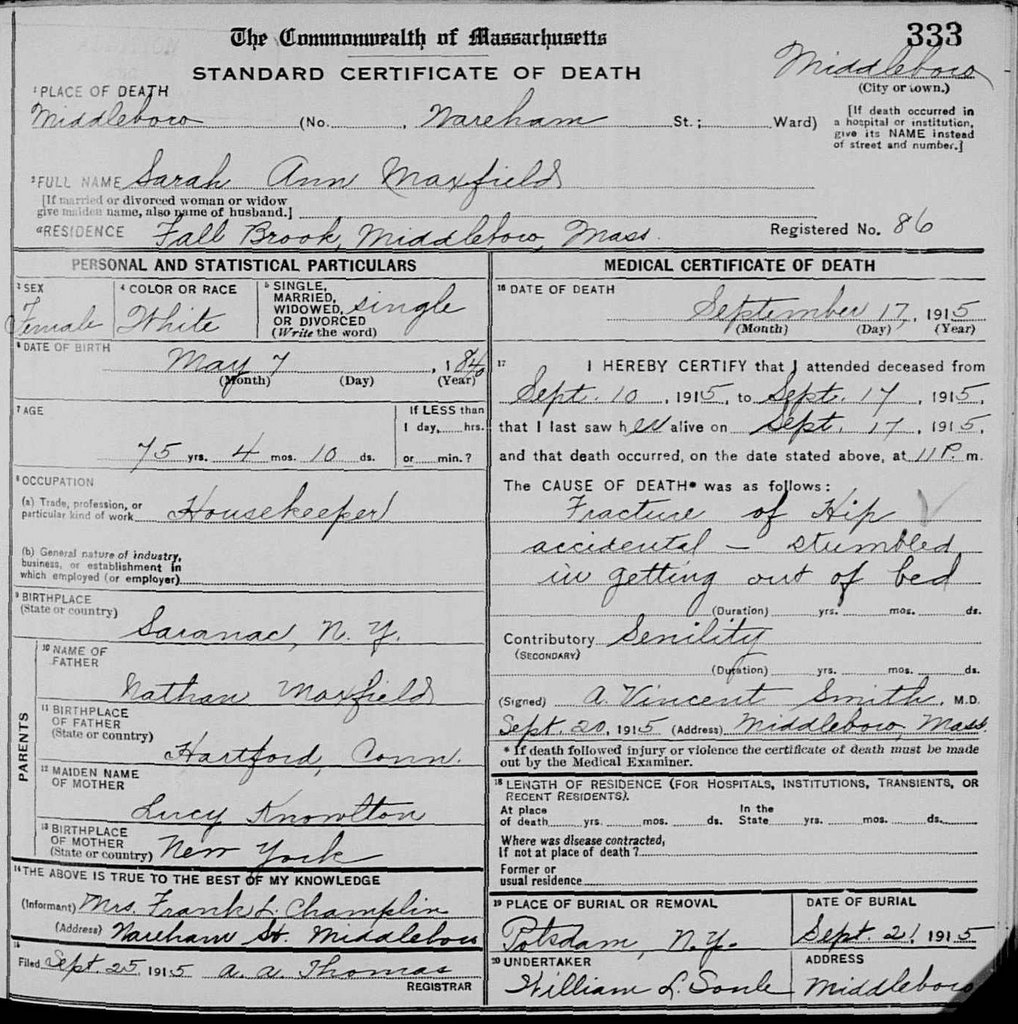 The Commonwealth of Massachusetts
333
STANDARD CERTIFICATE OF DEATH
Middleboro
(City or town.)
1 PLACE OF DEATH
Middleboro (No. , Wareham St.; Ward)
[If death occurred in a hospital or institution, give its NAME instead of street and number.]
2 FULL NAME Sarah Ann Maxfield
[If married or divorced woman or widow
give maiden name, also name of husband.]
a RESIDENCE Fall Brook, Middleboro, Mass. Registered No. 86
PERSONAL AND STATISTICAL PARTICULARS
3 SEX
Female
4 COLOR OR RACE
White
5 SINGLE,
MARRIED,
WIDOWED,
OR DIVORCED
(Write the word)
single
6 DATE OF BIRTH
May 7, 1840
(Month) (Day) (Year)
7 AGE
75 yrs. 4 mos. 10 ds.
If LESS than
1 day, hrs.
or min.?
8 OCCUPATION
(a) Trade, profession, or
particular kind of work Housekeeper
(b) General nature of industry,
business, or establishment in
which employed (or employer)
9 BIRTHPLACE
(State or country)
Saranac, N. Y.
PARENTS
10 NAME OF
FATHER
Nathan Maxfield
11 BIRTHPLACE
OF FATHER
(State or country)
Hartford, Conn.
12 MAIDEN NAME
OF MOTHER
Lucy Knowlton
13 BIRTHPLACE
OF MOTHER
(State or country) New York
14 THE ABOVE IS TRUE TO THE BEST OF MY KNOWLEDGE
(Informant) Mrs. Frank L. Champlin
(Address) Wareham St. Middleboro
15
Filed Sept 25, 1915 A. A. Thomas
REGISTRAR
MEDICAL CERTIFICATE OF DEATH
16 DATE OF DEATH
September 17, 1915
(Month) (Day) (Year)
17 I HEREBY CERTIFY that I attended deceased from
Sept. 10, 1915, to Sept. 17, 1915,
that I last saw her alive on Sept. 17, 1915,
and that death occurred, on the date stated above, at 11 P. m.
The CAUSE OF DEATH* was as follows:
Fracture of Hip
accidental – stumbled
in getting out of bed
(Duration) yrs. mos. ds.
Contributory Senility
(SECONDARY)
(Duration) yrs. mos. ds.
(Signed) A. Vincent Smith, M.D.
Sept. 20, 1915 (Address) Middleboro, Mass.
* If death followed injury or violence the certificate of death must be made
out by the Medical Examiner.
18 LENGTH OF RESIDENCE (FOR HOSPITALS, INSTITUTIONS, TRANSIENTS, OR
RECENT RESIDENTS).
At place
of death yrs. mos. ds.
In the
State yrs. mos. ds.
Where was disease contracted,
If not at place of death?
Former or
usual residence
19 PLACE OF BURIAL OR REMOVAL
Potsdam, N.Y.
DATE OF BURIAL
Sept. 21, 1915
20 UNDERTAKER
William L. Soule
ADDRESS
Middleboro